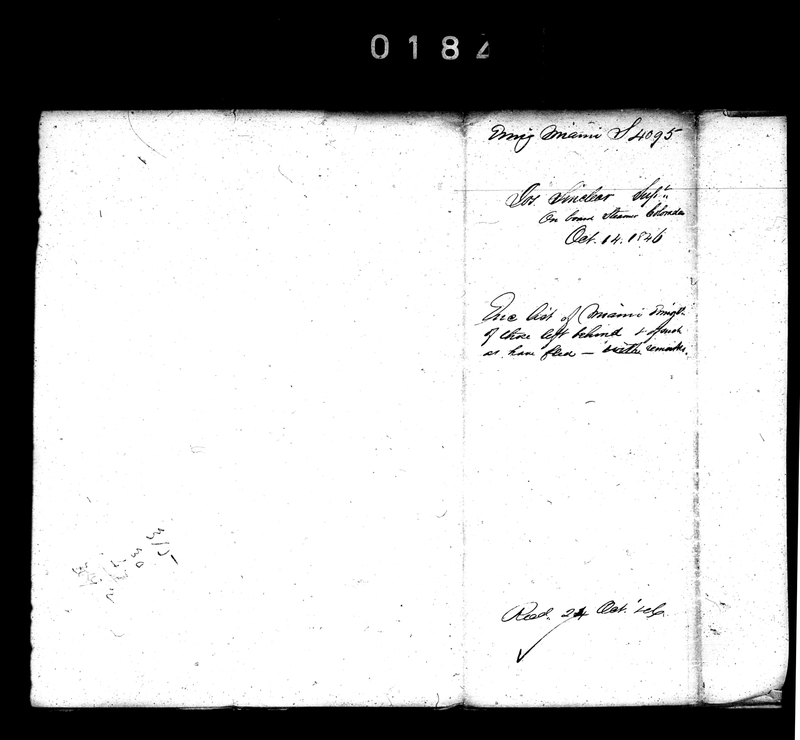 0184
Emig Miami S 4095
Jos. Sinclear Supt.
On board Steamer Colorado
Oct. 14. 1846
Enc list of Miami Emigts.
of those left behind & of such
as have fled — with remarks.
Recd. 24 Oct. '46.